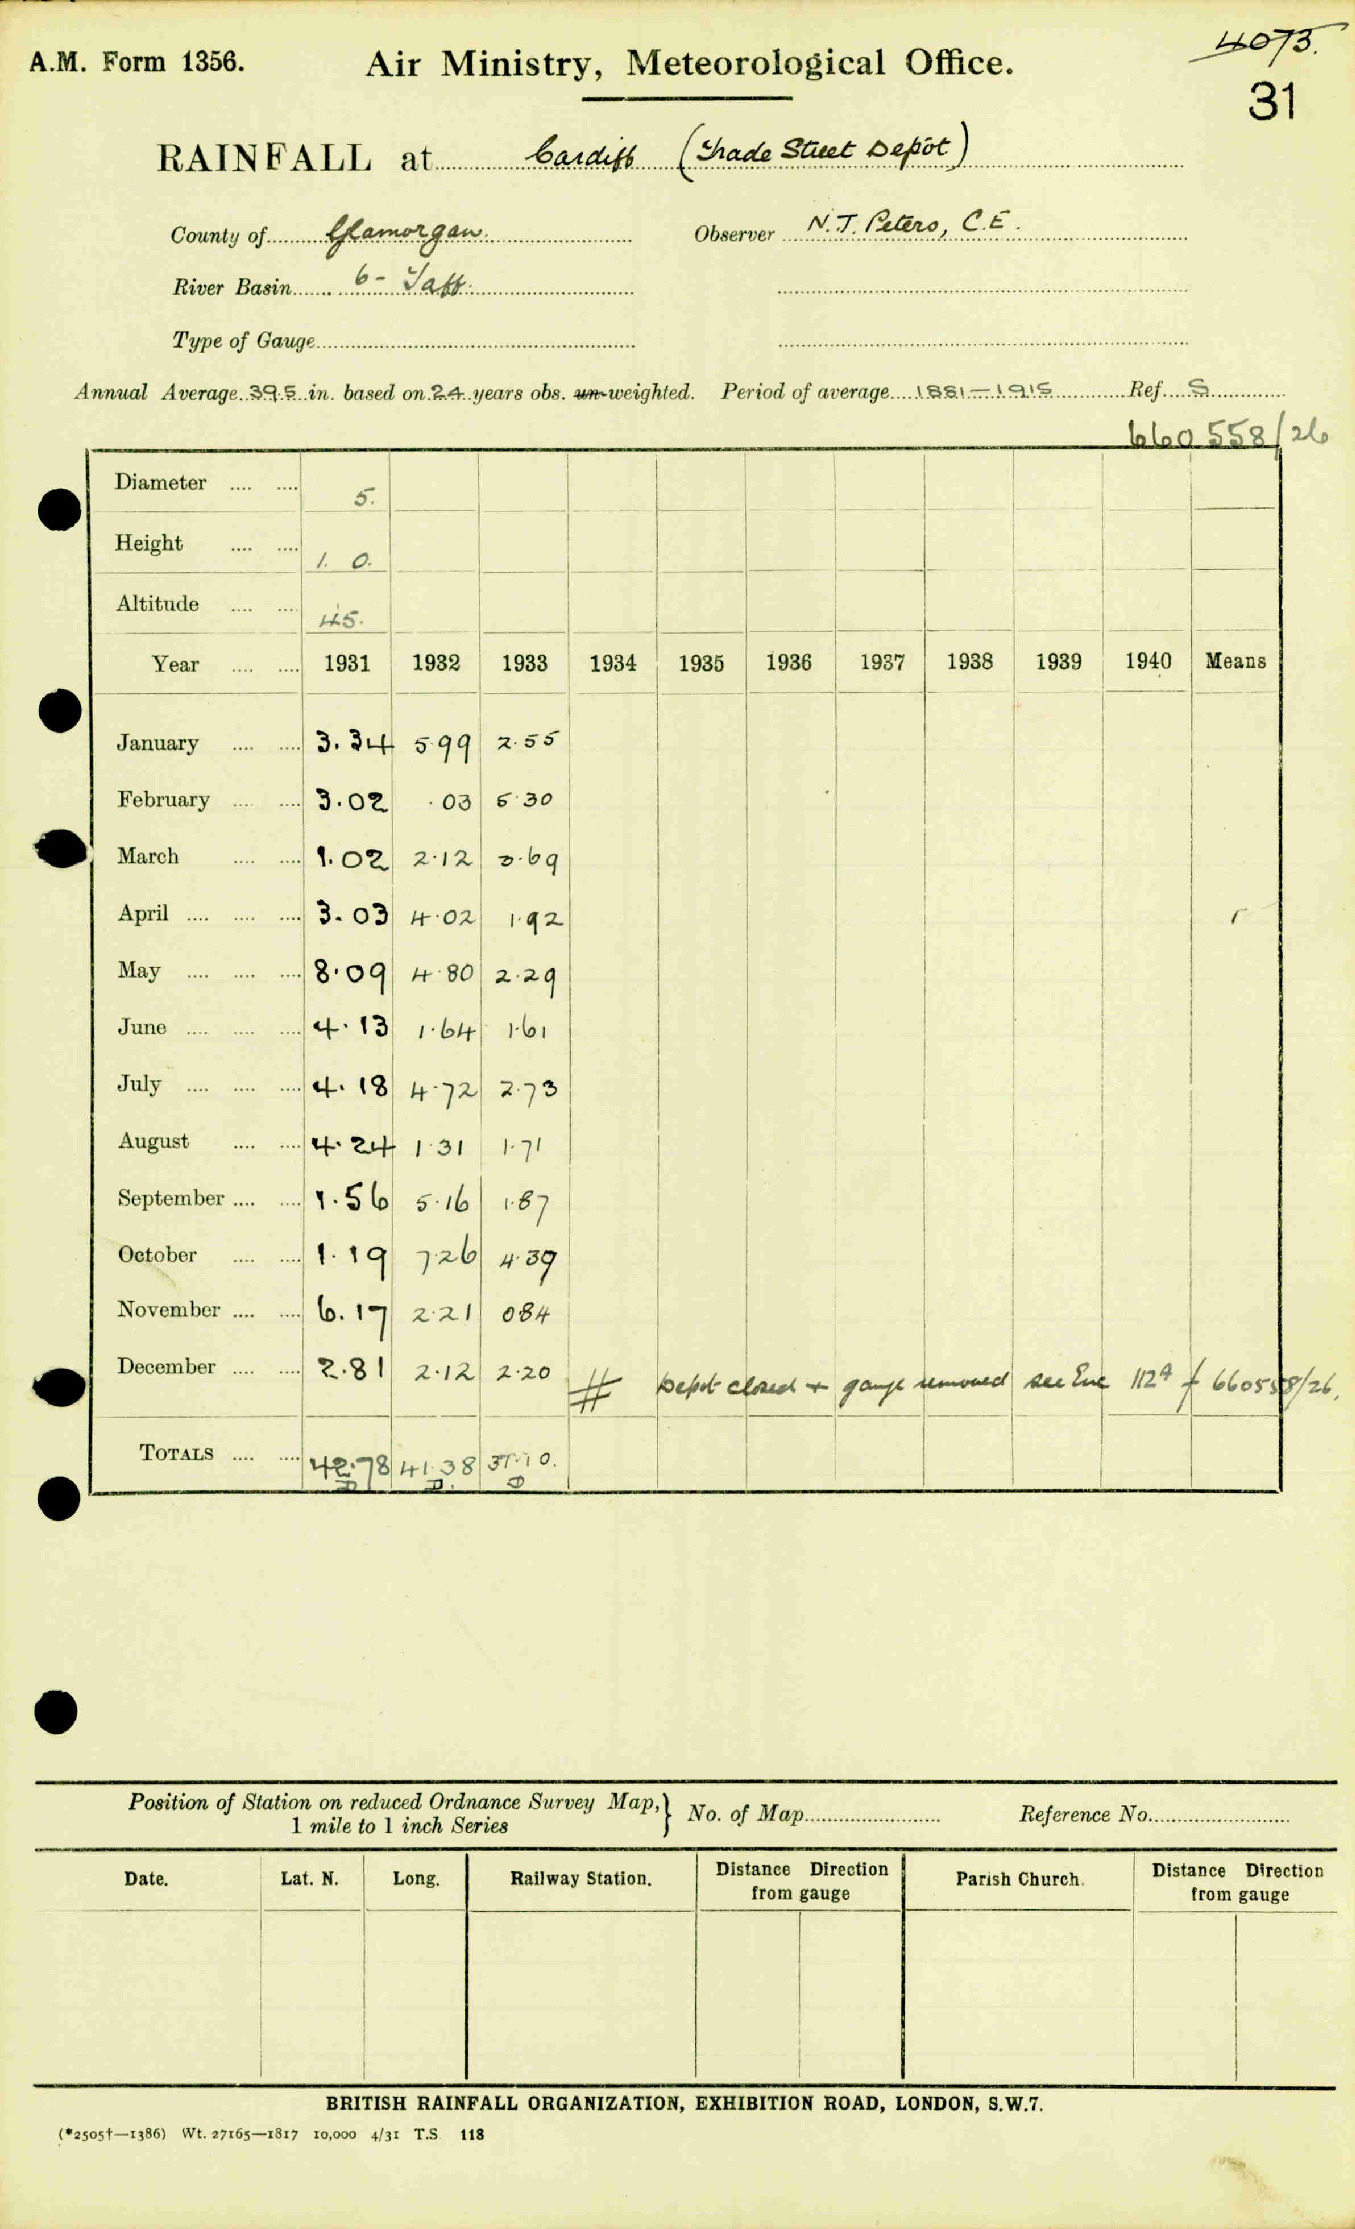 A.M. Form 1356. Air Ministry, Meteorological Office. 4073.
31
RAINFALL at Cardiff (Trade Street Depôt)
County of Glamorgan. Observer N.J. Peters, C.E.
River Basin 6 - Taff.
Type of Gauge
Annual Average 39.5 in. based on 24 years obs. un-weighted. Period of average 1881-1915 Ref. S
660 558/26
Diameter 5.
Height 1. 0.
Altitude 45.
Year 1931 1932 1933 1934 1935 1936 1937 1938 1939 1940 Means
January 3.34 5.99 2.55
February 3.02 .03 5.30
March 1.02 2.12 3.69
April 3.03 4.02 1.92
May 8.09 4.80 2.29
June 4.13 1.64 1.61
July 4.18 4.72 2.73
August 4.24 1.31 1.71
September 1.56 5.16 1.87
October 1.19 7.26 4.39
November 6.17 2.21 0.84
December 2.81 2.12 2.20 # Depôt closed + gauge removed see Enc 112A of 660558/26.
TOTALS 42.78 41.38 31.10.
D D. D
Position of Station on reduced Ordnance Survey Map, 1 mile to 1 inch Series } No. of Map Reference No.
Date. Lat. N. Long. Railway Station. Distance Direction from gauge Parish Church. Distance Direction from gauge
BRITISH RAINFALL ORGANIZATION, EXHIBITION ROAD, LONDON, S.W.7.
(*2505†—1386) Wt. 27165—1817 10,000 4/31 T.S. 118